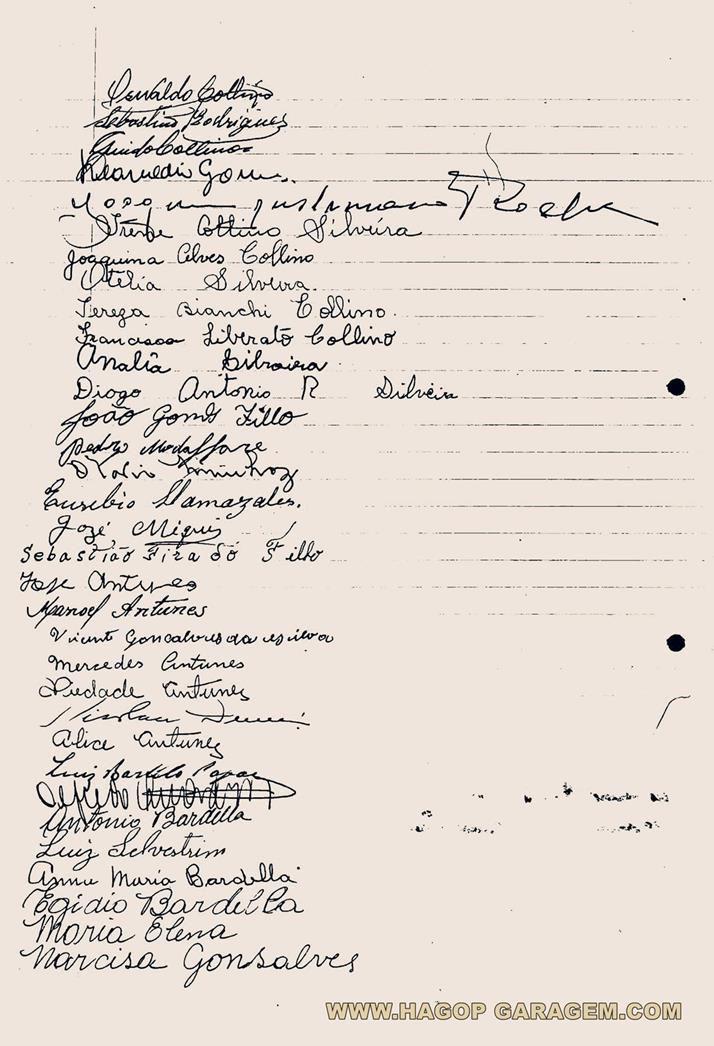 Osvaldo Collino
Sebastino Rodrigues
Guido Collino
Gomes
Rocha
Irene Collino Silveira
Joaquina Alves Collino
Otelia Silveira
Tereza Bianchi Collino
Francisca Liberato Collino
Analia Silveira
Diogo Antonio R Silveira
João Gomes Fillo
Pedro Modaffare
Eusebio Llamazales.
José Miguis
Sebastião Fira do Filho
Jose Antunes
Manoel Antunes
Vicente Goncalves da silva
Mercedes Antunes
Piedade Antunes
Nicolau
Alice Antunes
Luiz Bardela
Antonio Bardella
Luiz Selvestrim
Anna Maria Bardella
Egidio Bardella
Maria Elena
Narcisa Gonsalves
WWW.HAGOP GARAGEM.COM